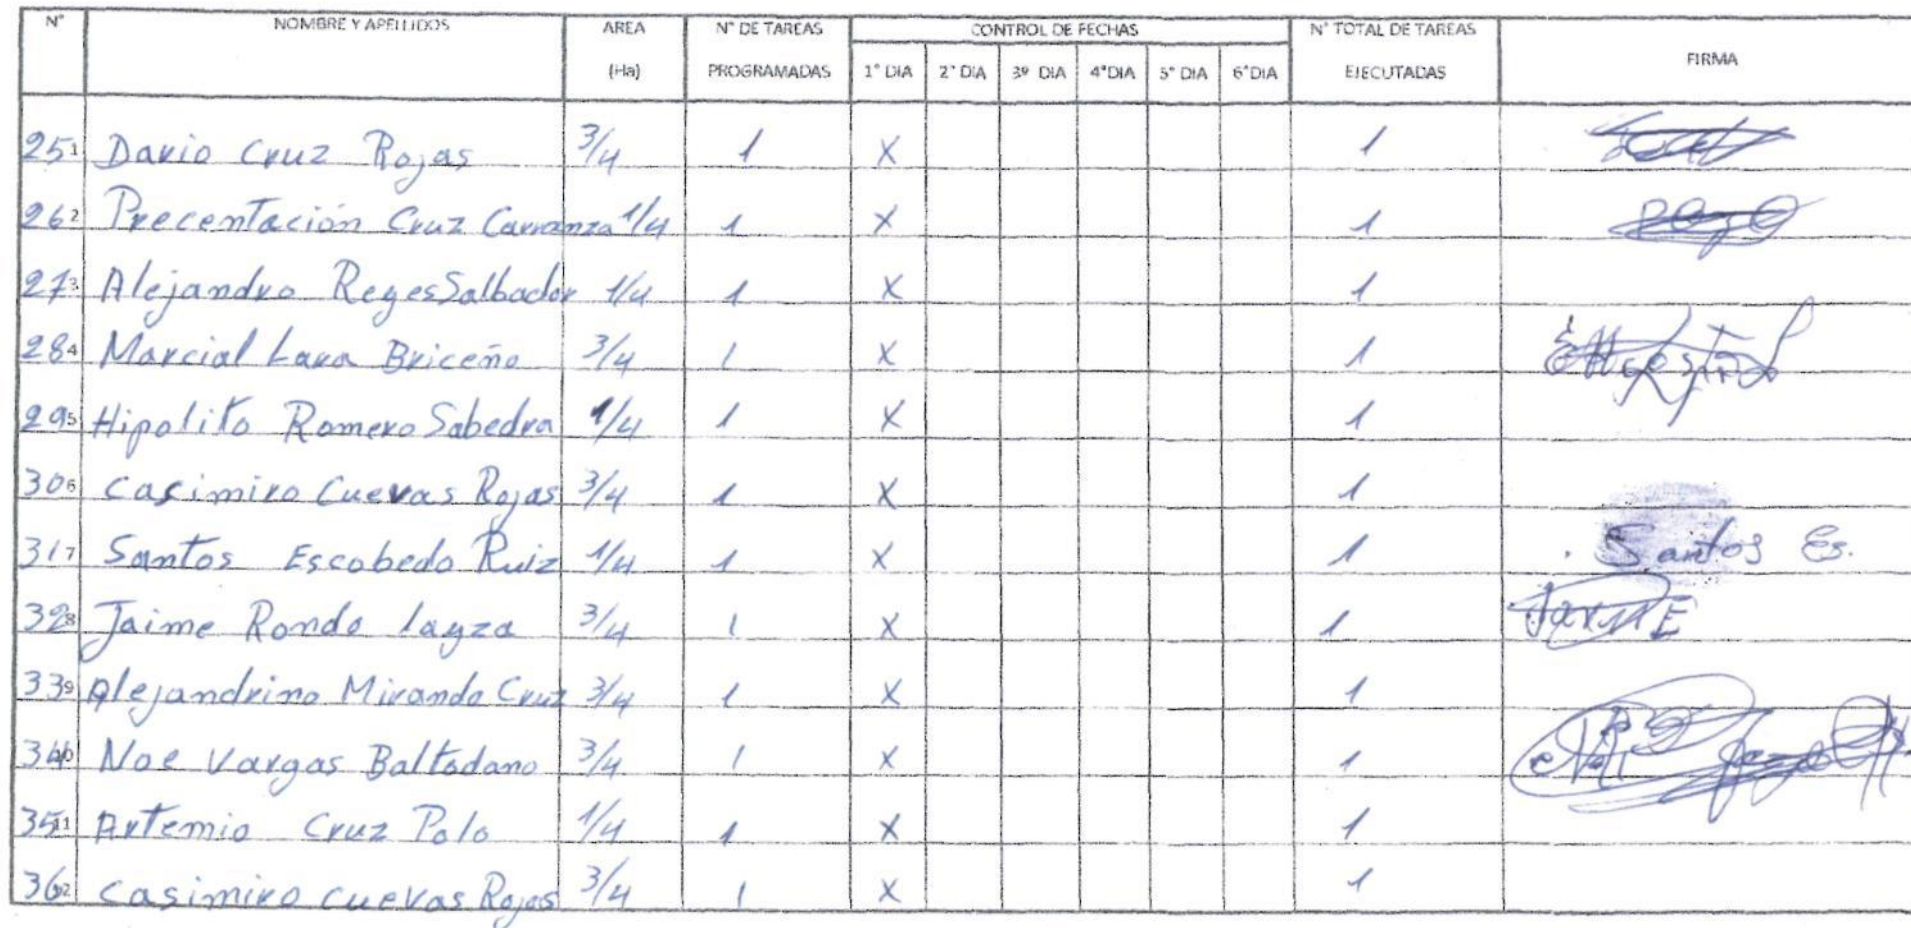 N° NOMBRE Y APELLIDOS AREA (Ha) N° DE TAREAS PROGRAMADAS CONTROL DE FECHAS N° TOTAL DE TAREAS EJECUTADAS FIRMA
1° DIA 2° DIA 3º DIA 4°DIA 5° DIA 6°DIA
25 1 Dario Cruz Rojas 3/4 1 X 1
26 2 Precentación Cruz Carranza 1/4 1 X 1
27 3 Alejandro Reyes Salbador 1/4 1 X 1
28 4 Marcial Lara Briceño 3/4 1 X 1
29 5 Hipolito Romero Sabedra 1/4 1 X 1
30 6 Casimiro Cuevas Rojas 3/4 1 X 1
31 7 Santos Escobedo Ruiz 1/4 1 X 1 Santos Es.
32 8 Jaime Rondo layza 3/4 1 X 1
33 9 Alejandrino Miranda Cruz 3/4 1 X 1
34 10 Noe Vargas Baltodano 3/4 1 X 1
35 11 Artemio Cruz Polo 1/4 1 X 1
36 12 Casimiro cuevas Rojas 3/4 1 X 1